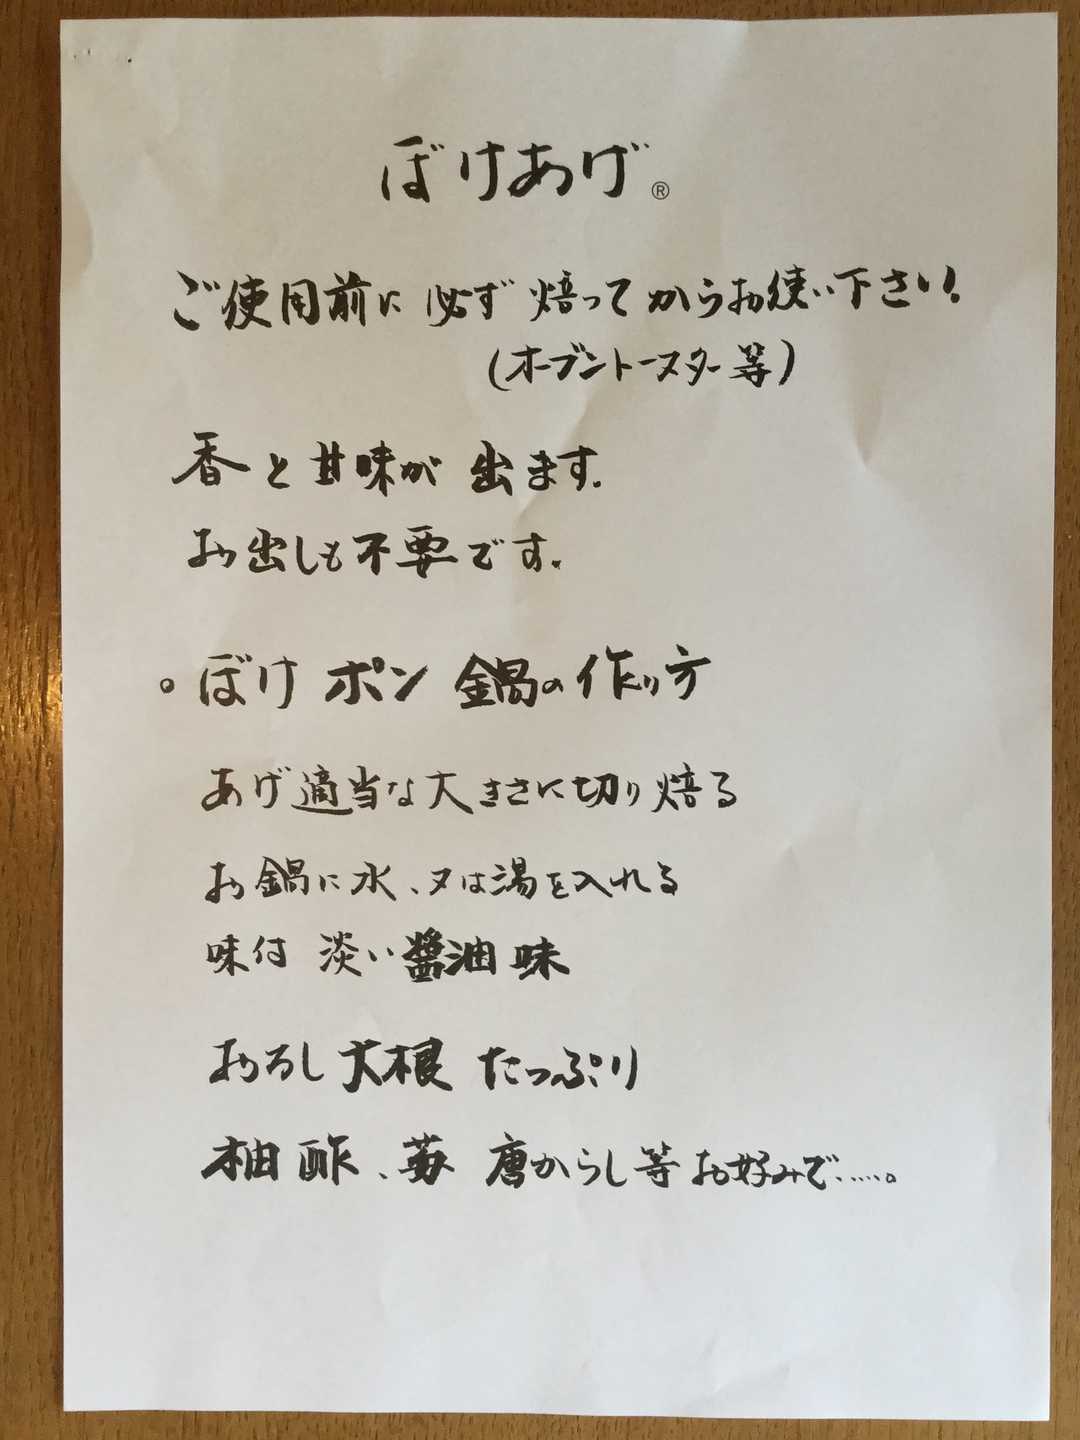 ぼけあげ®
ご使用前に必ず焙ってからお使い下さい。
(オーブントースター等)
香と甘味が出ます。
お出しも不要です。
○ぼけポン鍋の作り方
あげ適当な大きさに切り焙る
お鍋に水、又は湯を入れる
味付 淡い醤油味
おろし大根 たっぷり
柚酢、葱 唐がらし等お好みで……。